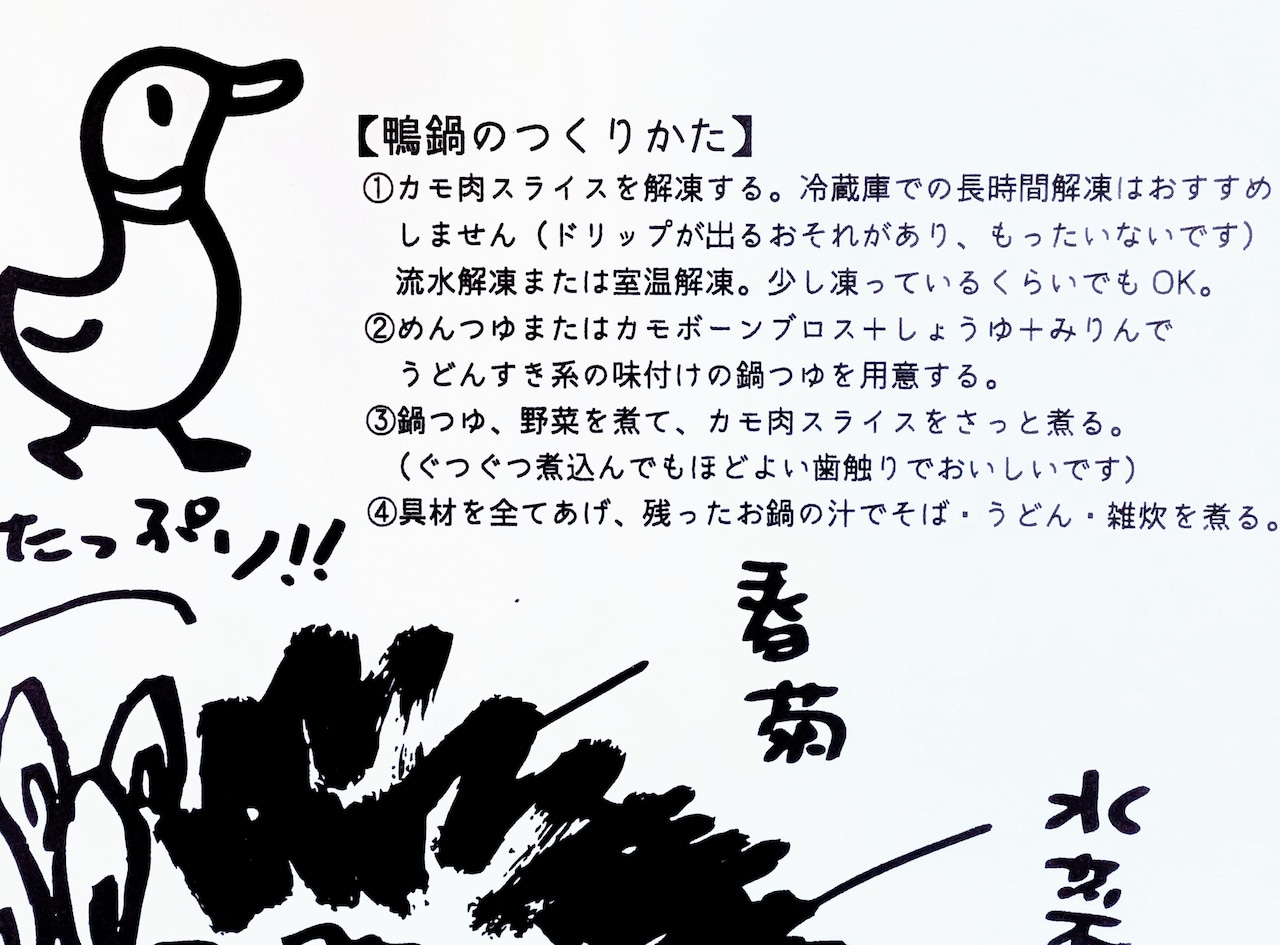 【鴨鍋のつくりかた】
①カモ肉スライスを解凍する。冷蔵庫での長時間解凍はおすすめ
しません（ドリップが出るおそれがあり、もったいないです）
流水解凍または室温解凍。少し凍っているくらいでもOK。
②めんつゆまたはカモボーンブロス＋しょうゆ＋みりんで
うどんすき系の味付けの鍋つゆを用意する。
③鍋つゆ、野菜を煮て、カモ肉スライスをさっと煮る。
（ぐつぐつ煮込んでもほどよい歯触りでおいしいです）
④具材を全てあげ、残ったお鍋の汁でそば・うどん・雑炊を煮る。
たっぷり!!
春菊
水菜